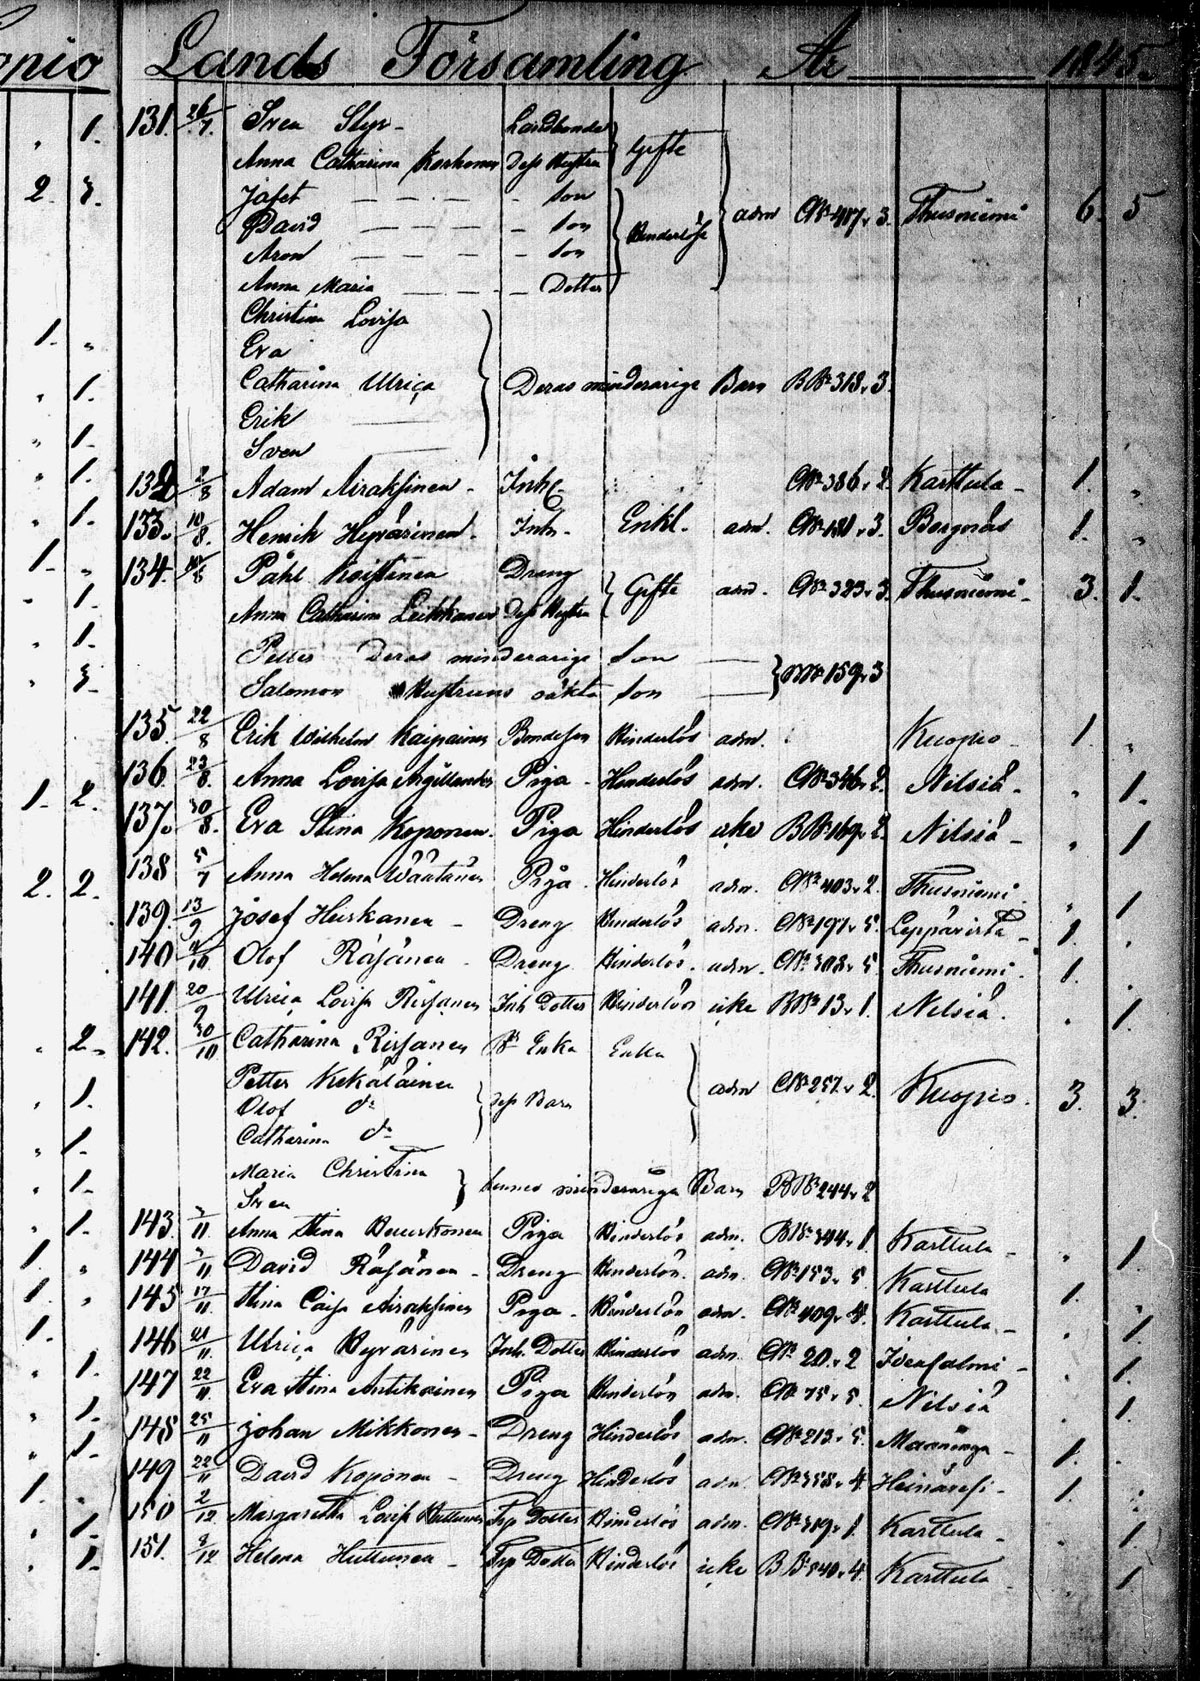 opio Lands Församling År 1845.
131. 26/7. Sven Slyr- Landbonde
Anna Catharina Korhonen Dess Hustru } Gifte
Jafet — — — - son
David — — — - son } adm CN° 417. 3. Thusniemi 6. 5
Aron — — — - son } Hinderlöse
Anna Maria — — — - Dotter
Christina Lovisa
Eva
Catharina Ulrica } Deras minderarige Barn BN° 318. 3.
Erik
Sven
132 2/8 Adam Airaksinen - Inh. CN° 386. 2. Karttula - 1. "
133. 10/8. Henrik Hyvärinen - Inh. Enkl. adm. CN° 181. 3. Bergnäs 1. "
134. Påhl Koistinen Dreng } Gifte adm. CN° 323. 3. Thusniemi - 3. 1.
Anna Catharina Leikkanen Dess Hustru
Petter Deras minderarige son —
Salomon Hustruns oäkta son — } BN° 159. 3
135 22/8 Erik Wilhelm Kaipainen Bondeson Hinderlös adm. Kuopio - 1. "
136 23/8. Anna Lovisa Argillander Piga - Hinderlös adm. CN° 346. 2. Nilsiä - " 1.
137. 30/8. Eva Stina Koponen. Piga Hinderlös icke BN° 169. 2. Nilsiä - " 1
138 5/7 Anna Helena Wäätänen Piga - Hinderlös adm. CN° 403. 2. Thusniemi. " 1
139. 13/9 Josef Heiskanen - Dreng Hinderlös adm. CN° 197. 5. Leppävirta - 1. "
140 /10 Olof Räsänen - Dreng Hinderlös. adm. CN° 303. 5 Thusniemi. 1. "
141. 20/9 Ulrica Lovisa Rissanen Inh Dotter Hinderlös icke BN° 13. 1. Nilsiä. " 1.
142. 30/10 Catharina Rissanen Enka Enka
Petter Kekäläinen
Olof d° } dess Barn } adm CN° 257. 2. Kuopio. 3. 3.
Catharina d°
Maria Christina } hennes minderåriga Barn BN° 244. 2
Sven
143. /11. Anna Stina Piga Hinderlös adm. BN° 344. 1. Karttula - " 1.
144 /11 David Räsänen - Dreng Hinderlös. adm. CN° 153. 5 Karttula 1. "
145 17/11. Stina Caisa Airaksinen Piga - Hinderlös adm. CN° 409. 4. Karttula - " 1.
146 21/11. Ulrica Hyvärinen Inh. Dotter Hinderlös adm CN° 20. 2 Idensalmi - " 1.
147 22/11. Eva Stina Antikainen Piga Hinderlös adm. CN° 75. 5. Nilsiä " 1.
148 25/11 Johan Mikkonen - Dreng Hinderlös adm. CN° 213. 5. Maaninga - 1. "
149 22/11 David Koponen - Dreng Hinderlös adm CN° 358. 4. Heinävesi - 1. "
150 2/12 Margaretha Lovisa Huttunen Trp Dotter Hinderlös adm. CN° 319. 1. Karttula - " 1.
151. 8/12 Helena Huttunen - Trp Dotter Hinderlös icke BN° 340. 4. Karttula - " 1.